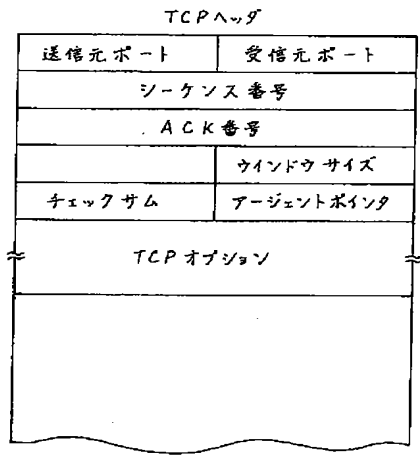 TCPヘッダ
送信元ポート 受信元ポート
シーケンス番号
ACK番号
ウインドウサイズ
チェックサム アージェントポインタ
TCPオプション